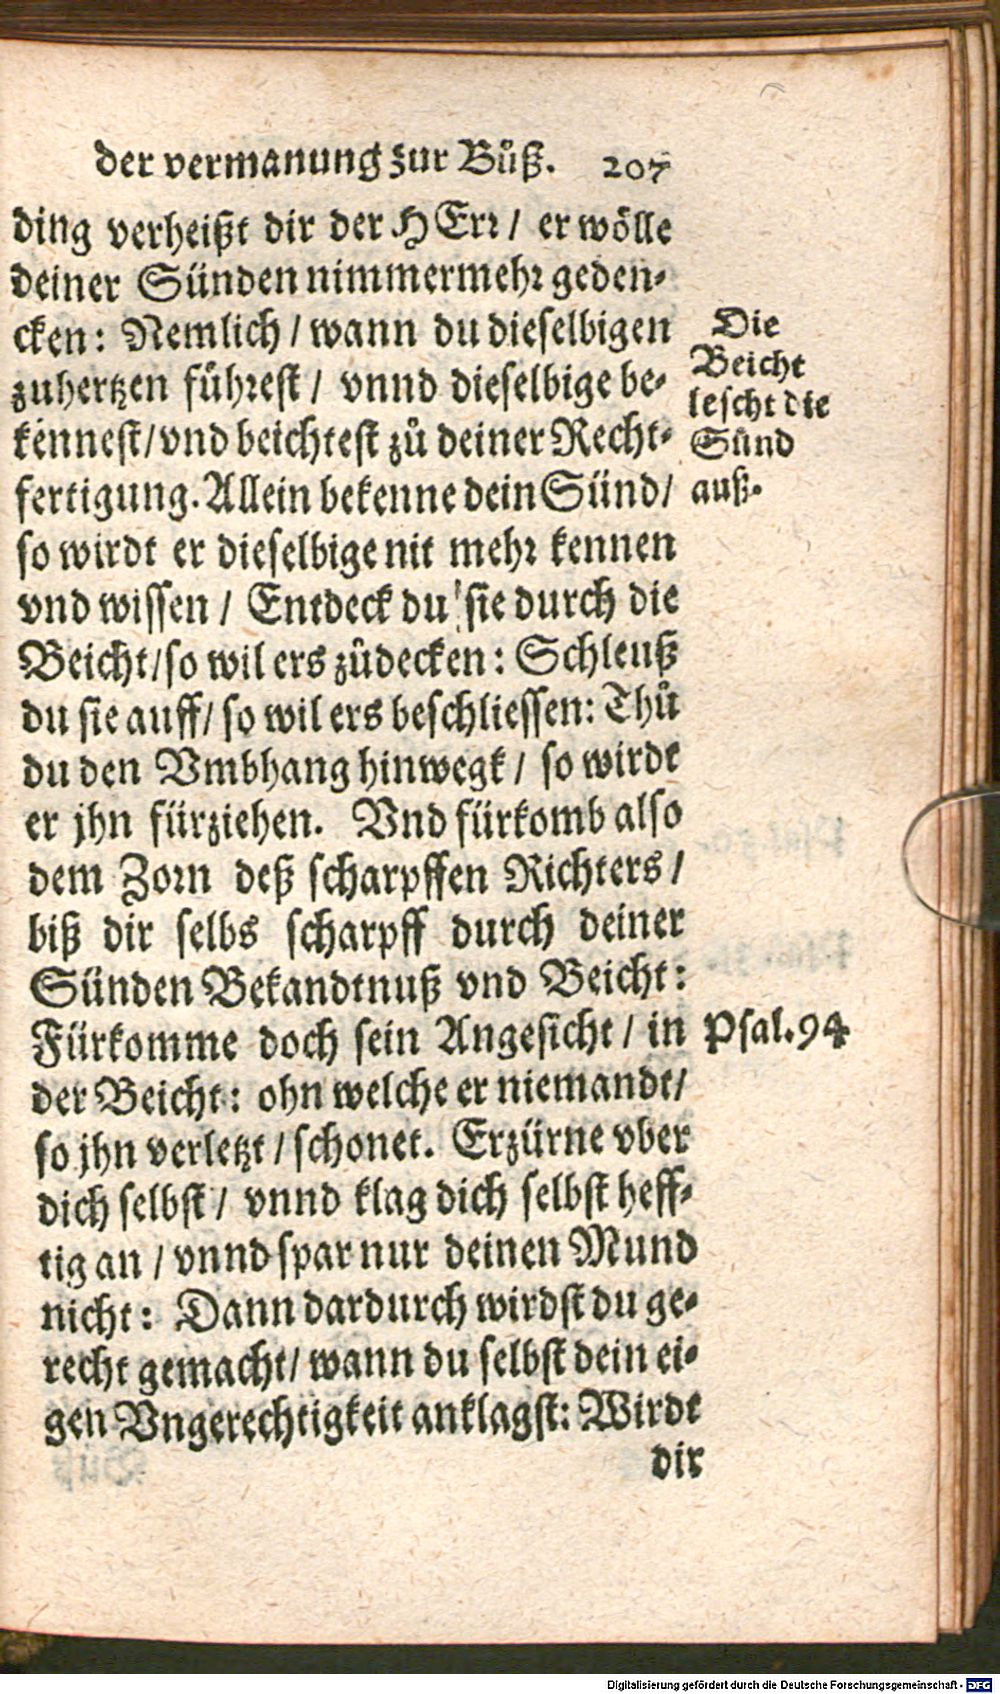 der vermanung zur Bůß. 207
ding verheißt dir der HErr / er wölle
deiner Sünden nimmermehr geden-
cken: Nemlich / wann du dieselbigen
zuhertzen führest / vnnd dieselbige be-
kennest/vnd beichtest zů deiner Recht-
fertigung. Allein bekenne dein Sünd/
so wirdt er dieselbige nit mehr kennen
vnd wissen / Entdeck du sie durch die
Beicht/so wil ers zůdecken: Schleuß
du sie auff/ so wil ers beschliessen: Thů
du den Vmbhang hinwegk / so wirdt
er jhn fürziehen. Vnd fürkomb also
dem Zorn deß scharpffen Richters /
biß dir selbs scharpff durch deiner
Sünden Bekandtnuß vnd Beicht:
Fürkomme doch sein Angesicht / in
der Beicht: ohn welche er niemandt/
so jhn verletzt / schonet. Erzürne vber
dich selbst / vnnd klag dich selbst heff-
tig an / vnnd spar nur deinen Mund
nicht: Dann dardurch wirdst du ge-
recht gemacht/ wann du selbst dein ei-
gen Vngerechtigkeit anklagst: Wirdt
dir
Die
Beicht
lescht die
Sünd
auß.
Psal.94
Digitalisierung gefördert durch die Deutsche Forschungsgemeinschaft - DFG